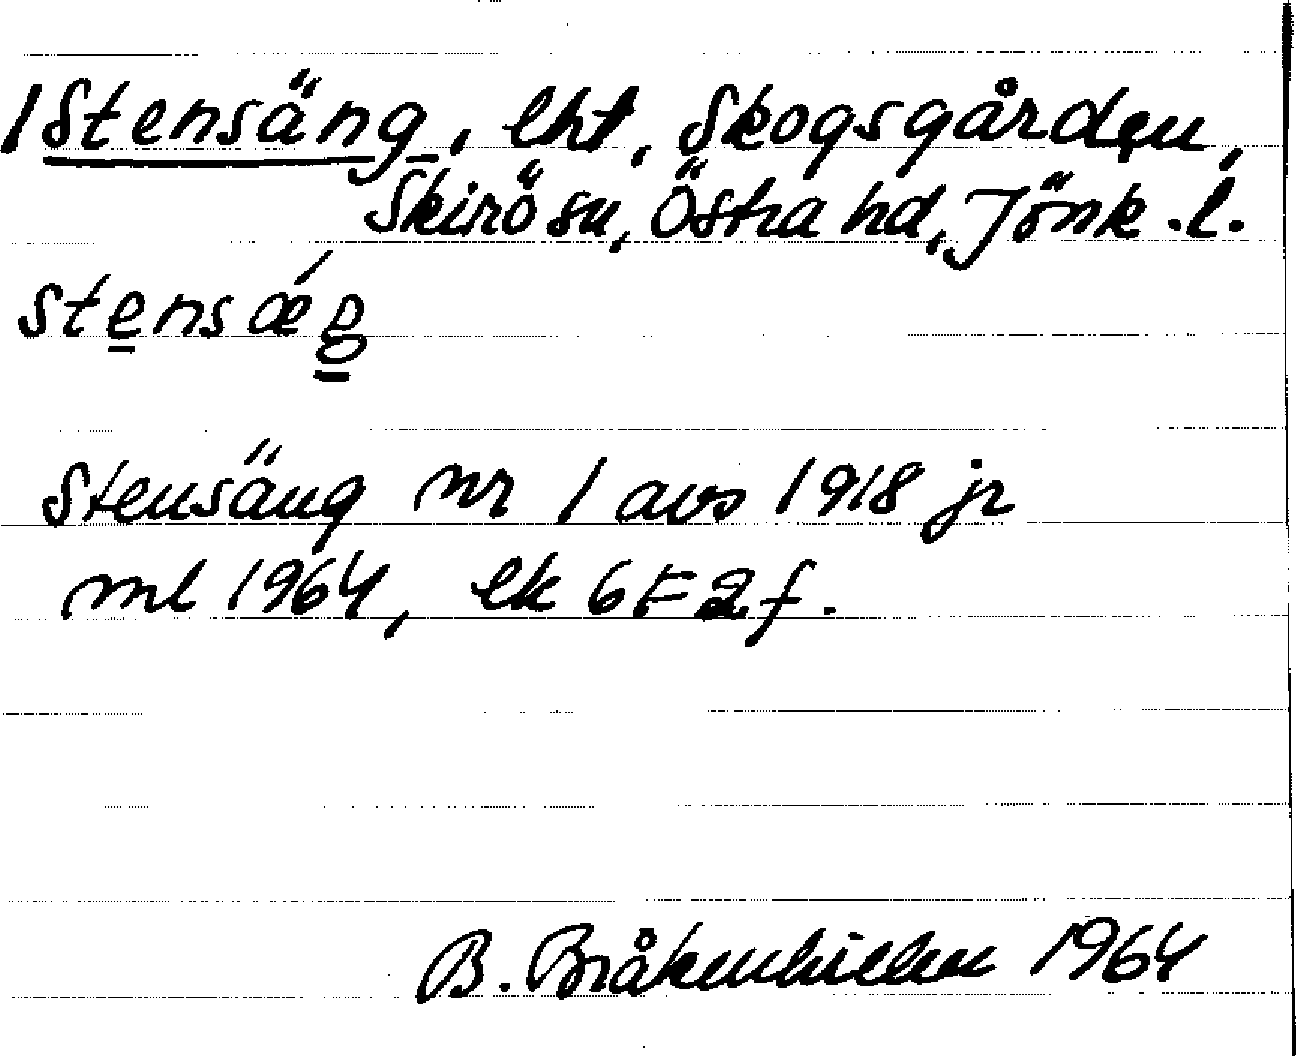 1 Stensäng, lht, Skogsgården,
Skirö sn, Östra hd, Jönk. l.
Stensäng nr 1 avs 1918 jr
ml 1964, ek 6F2f.
B. 1964